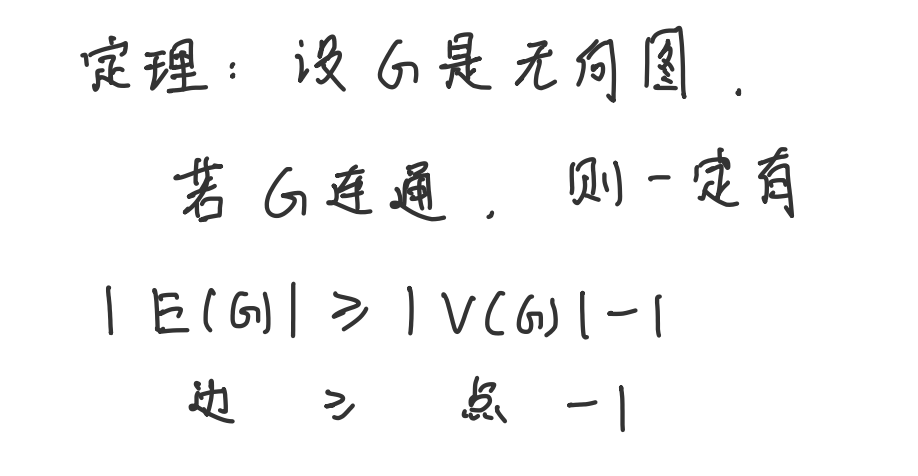 定理：设G是无向图．
若G连通．则一定有
|E(G)|≥|V(G)|-1
边 ≥ 点 -1